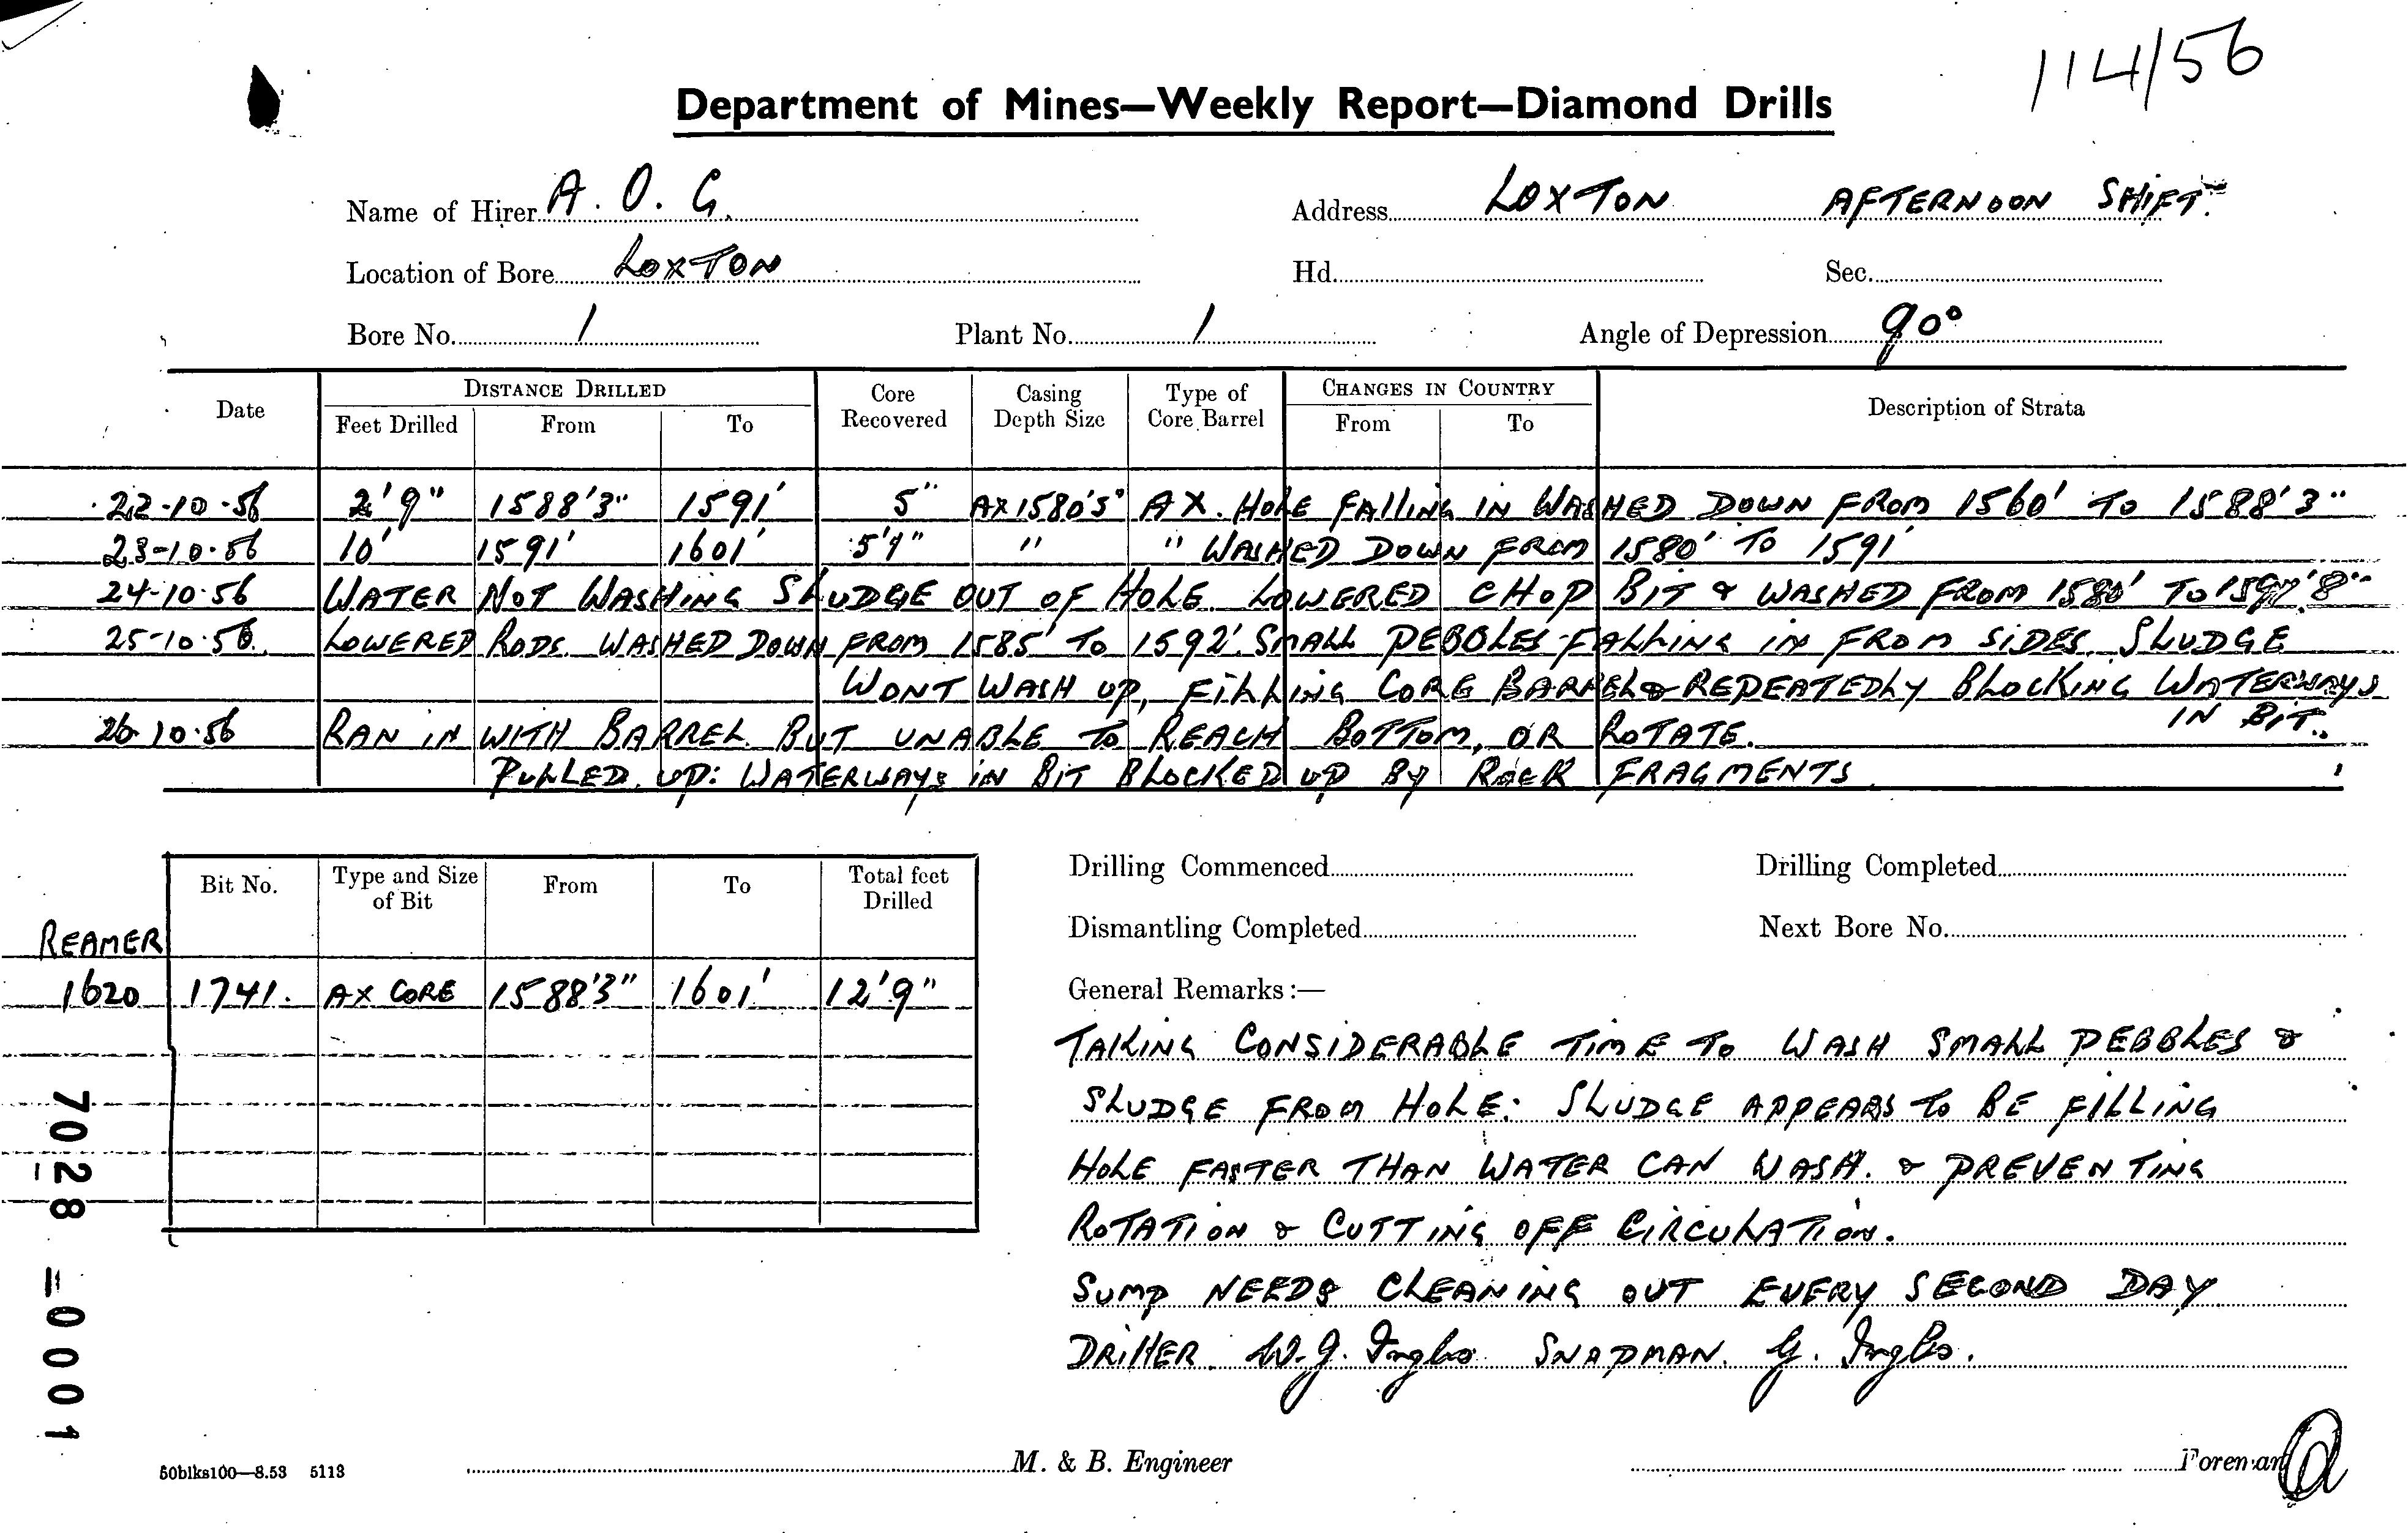 114/56
Department of Mines—Weekly Report—Diamond Drills
Name of Hirer A. O. G. Address LOXTON AFTERNOON SHIFT.
Location of Bore LOXTON Hd. Sec.
Bore No. 1 Plant No. 1 Angle of Depression 90°
Date DISTANCE DRILLED Core Recovered Casing Depth Size Type of Core Barrel CHANGES IN COUNTRY Description of Strata
Feet Drilled From To From To
22-10-56 2'9" 1588'3" 1591' 5" AX 1580'5" AX. HOLE FALLING IN WASHED DOWN FROM 1560' TO 1588'3"
23-10-56 10' 1591' 1601' " " WASHED DOWN FROM 1580' TO 1591'
24-10-56 WATER NOT WASHING SLUDGE OUT OF HOLE LOWERED CHOP BIT & WASHED FROM 1580' TO
25-10-56. LOWERED RODS. WASHED DOWN FROM 1585' TO 1592'. SMALL PEBBLES FALLING IN FROM SIDES. SLUDGE
WONT WASH UP, FILLING CORE BARREL & REPEATEDLY BLOCKING WATERWAYS
IN BIT.
26-10-56 RAN IN WITH BARREL BUT UNABLE TO REACH BOTTOM, OR ROTATE.
PULLED UP: WATERWAYS IN BIT BLOCKED UP BY ROCK FRAGMENTS
Bit No. Type and Size of Bit From To Total feet Drilled
REAMER
1620 1741. AX CORE 1588'3" 1601' 12'9"
Drilling Commenced Drilling Completed
Dismantling Completed Next Bore No.
General Remarks :—
TAKING CONSIDERABLE TIME TO WASH SMALL PEBBLES &
SLUDGE FROM HOLE: SLUDGE APPEARS TO BE FILLING
HOLE FASTER THAN WATER CAN WASH. & PREVENTING
ROTATION & CUTTING OFF CIRCULATION.
SUMP NEEDS CLEANING OUT EVERY SECOND DAY
DRILLER. W. J. SNAPMAN. G.
7028-0001
50blks100—8.53 5113
M. & B. Engineer
Foreman